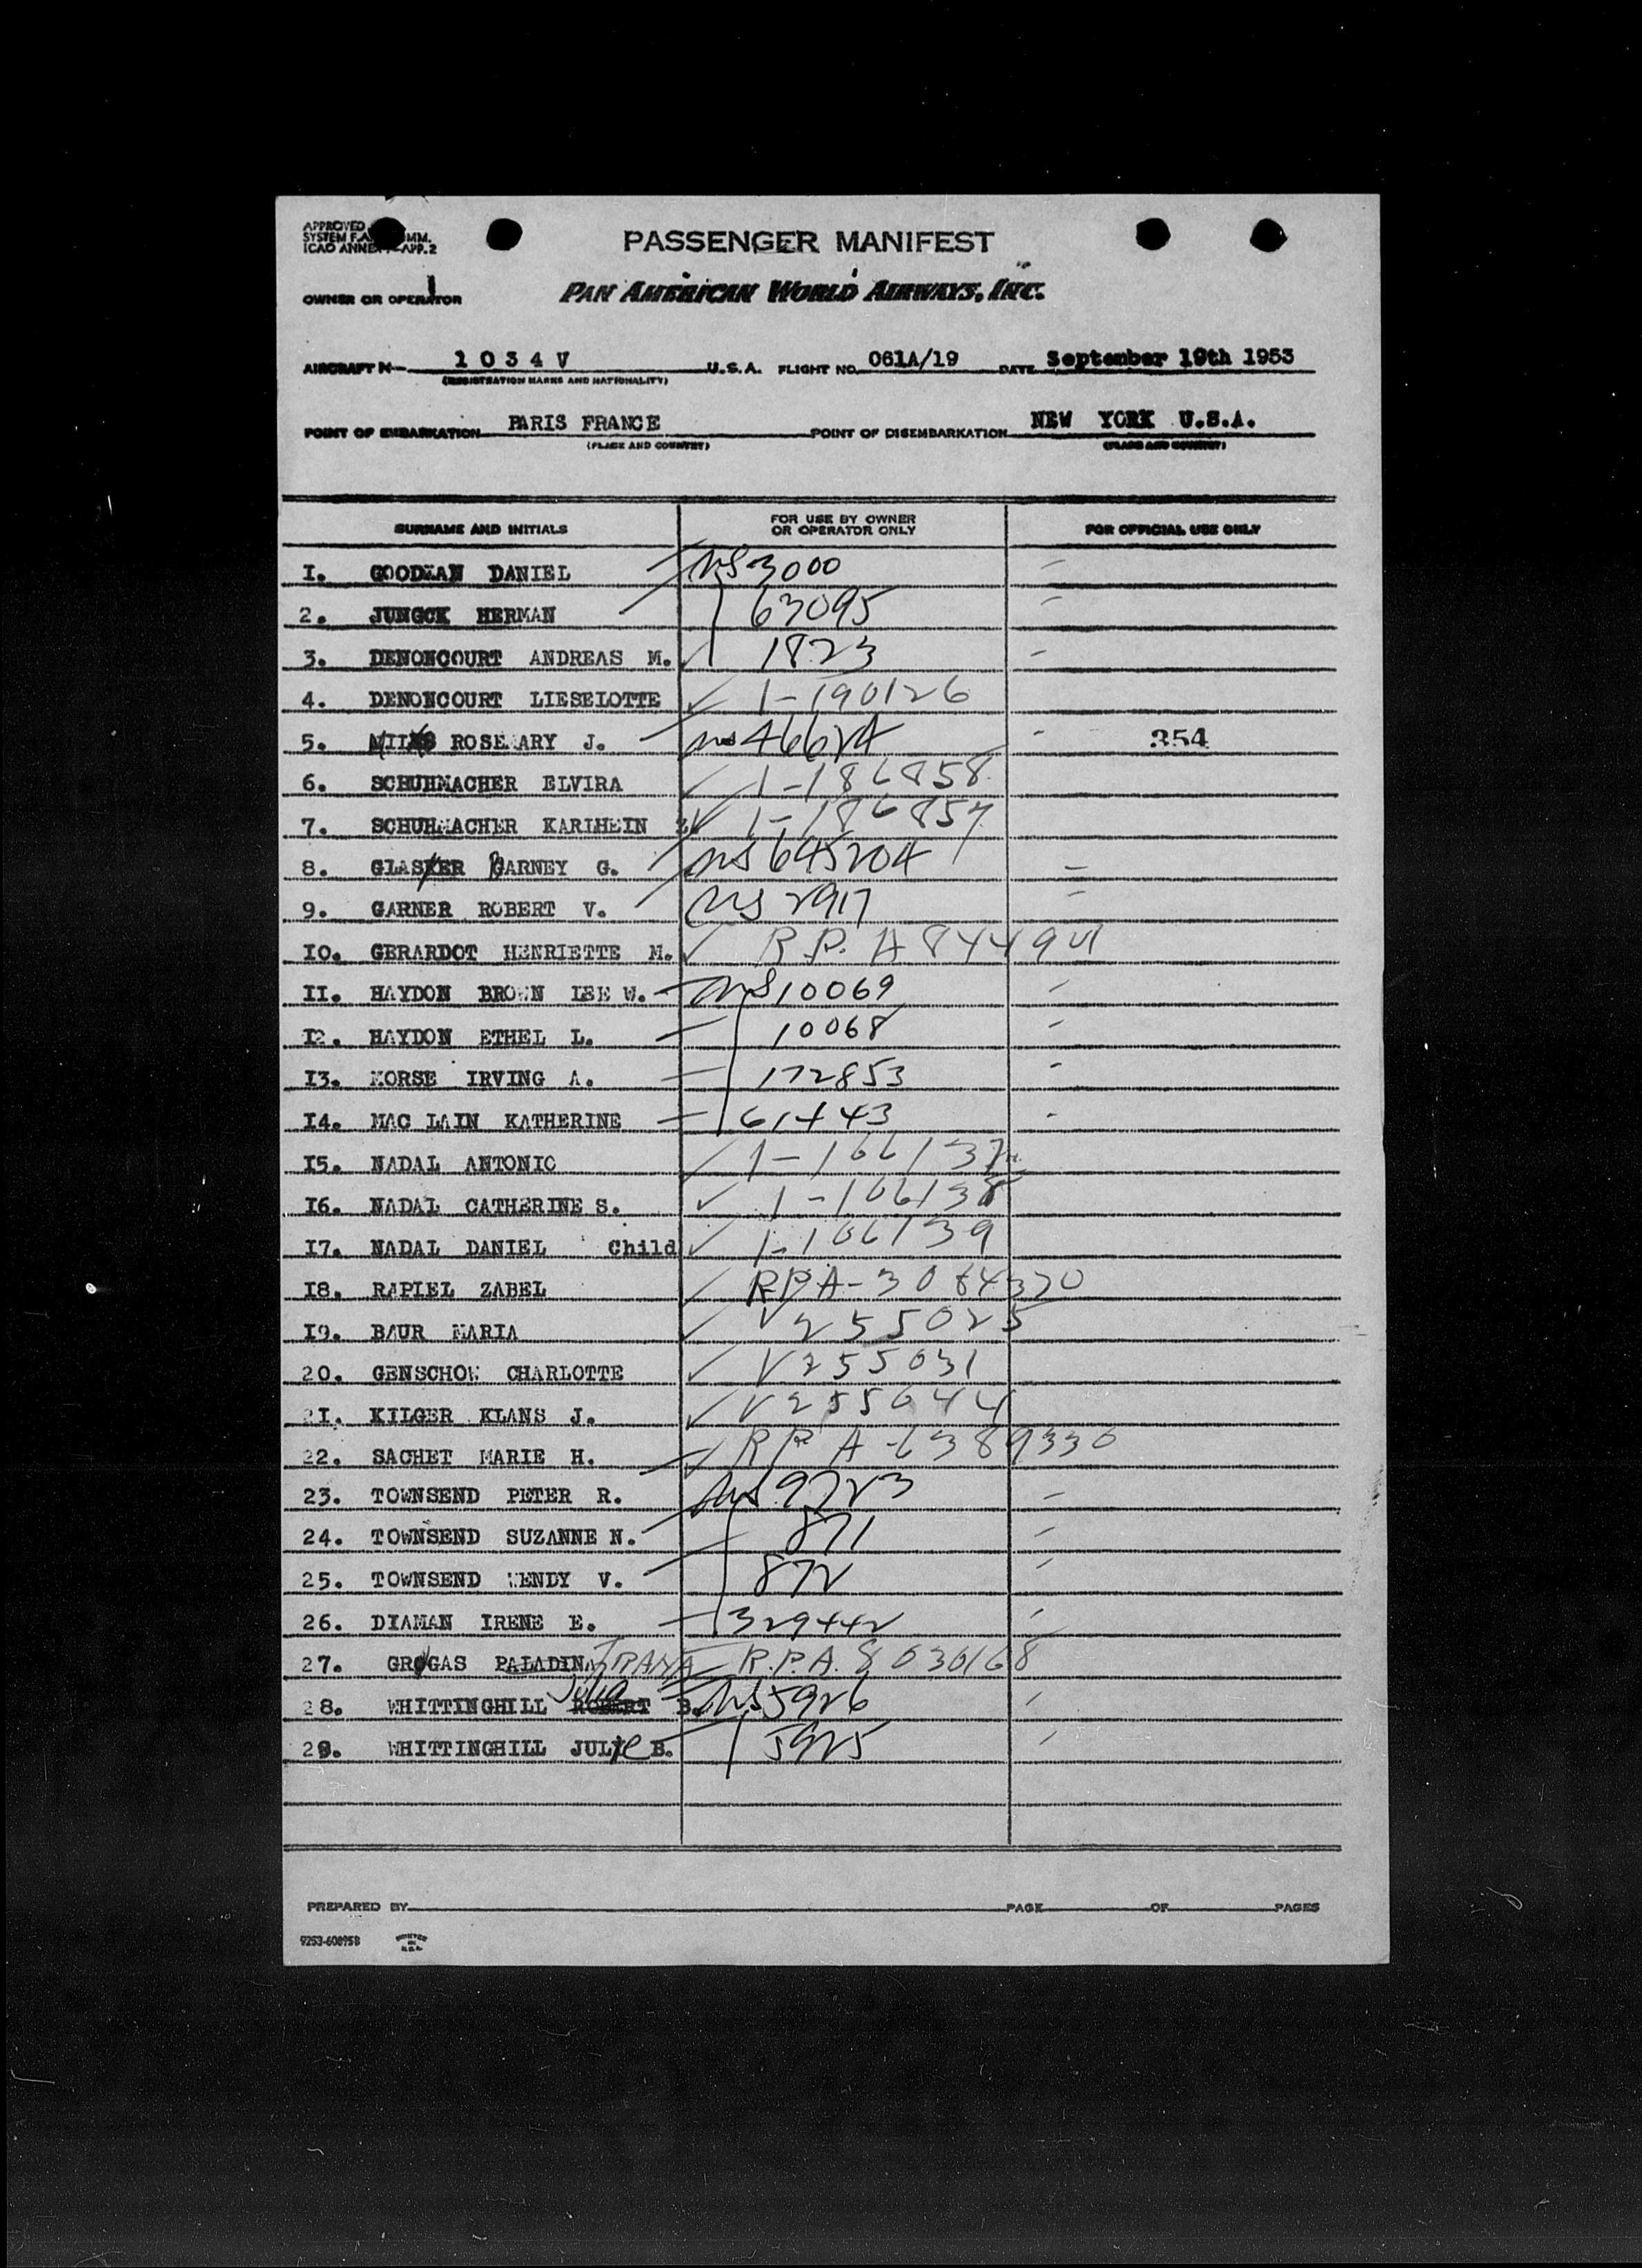 APPROVED
SYSTEM F.A. COMM.
ICAO ANNEX APP. 2
PASSENGER MANIFEST
OWNER OR OPERATOR PAN AMERICAN WORLD AIRWAYS, INC.
AIRCRAFT N 1 0 3 4 V U.S.A. FLIGHT NO. 061A/19 DATE September 19th 1953
(REGISTRATION MARKS AND NATIONALITY)
POINT OF EMBARKATION PARIS FRANCE POINT OF DISEMBARKATION NEW YORK U.S.A.
(PLACE AND COUNTRY) (PLACE AND COUNTRY)
SURNAME AND INITIALS FOR USE BY OWNER OR OPERATOR ONLY FOR OFFICIAL USE ONLY
I. GOODMAN DANIEL 3000
2. JUNGCK HERMAN 63095
3. DENONCOURT ANDREAS M. 1823
4. DENONCOURT LIESELOTTE 1-190126
5. ROSEMARY J. 354
6. SCHUHMACHER ELVIRA 1-186858
7. SCHUHMACHER KARLHEIN 1-186857
8. BARNEY G. 645204
9. GARNER ROBERT V. 2917
I0. GERARDOT HENRIETTE M. R.P. A
II. HAYDON BROWN LEE W. 10069
I2. HAYDON ETHEL L. 10068
I3. MORSE IRVING A. 172853
I4. MAC LAIN KATHERINE 61443
I5. NADAL ANTONIO 1-166137
I6. NADAL CATHERINE S. 1-166138
I7. NADAL DANIEL Child 1-166139
I8. RAPIEL ZABEL RPA-3064320
I9. BAUR MARIA V255025
20. GENSCHOW CHARLOTTE V255031
2I. KILGER KLANS J. V255044
22. SACHET MARIE H. RP A-6389330
23. TOWNSEND PETER R. 9723
24. TOWNSEND SUZANNE N. 871
25. TOWNSEND WENDY V. 872
26. DIAMAN IRENE E. 329442
27. PALADINA R.P.A. 8030168
Julia
28. WHITTINGHILL ROBERT B. 5926
29. WHITTINGHILL JULIE B. 5925
PREPARED BY PAGE OF PAGES
9253-60895B PRINTED IN U.S.A.